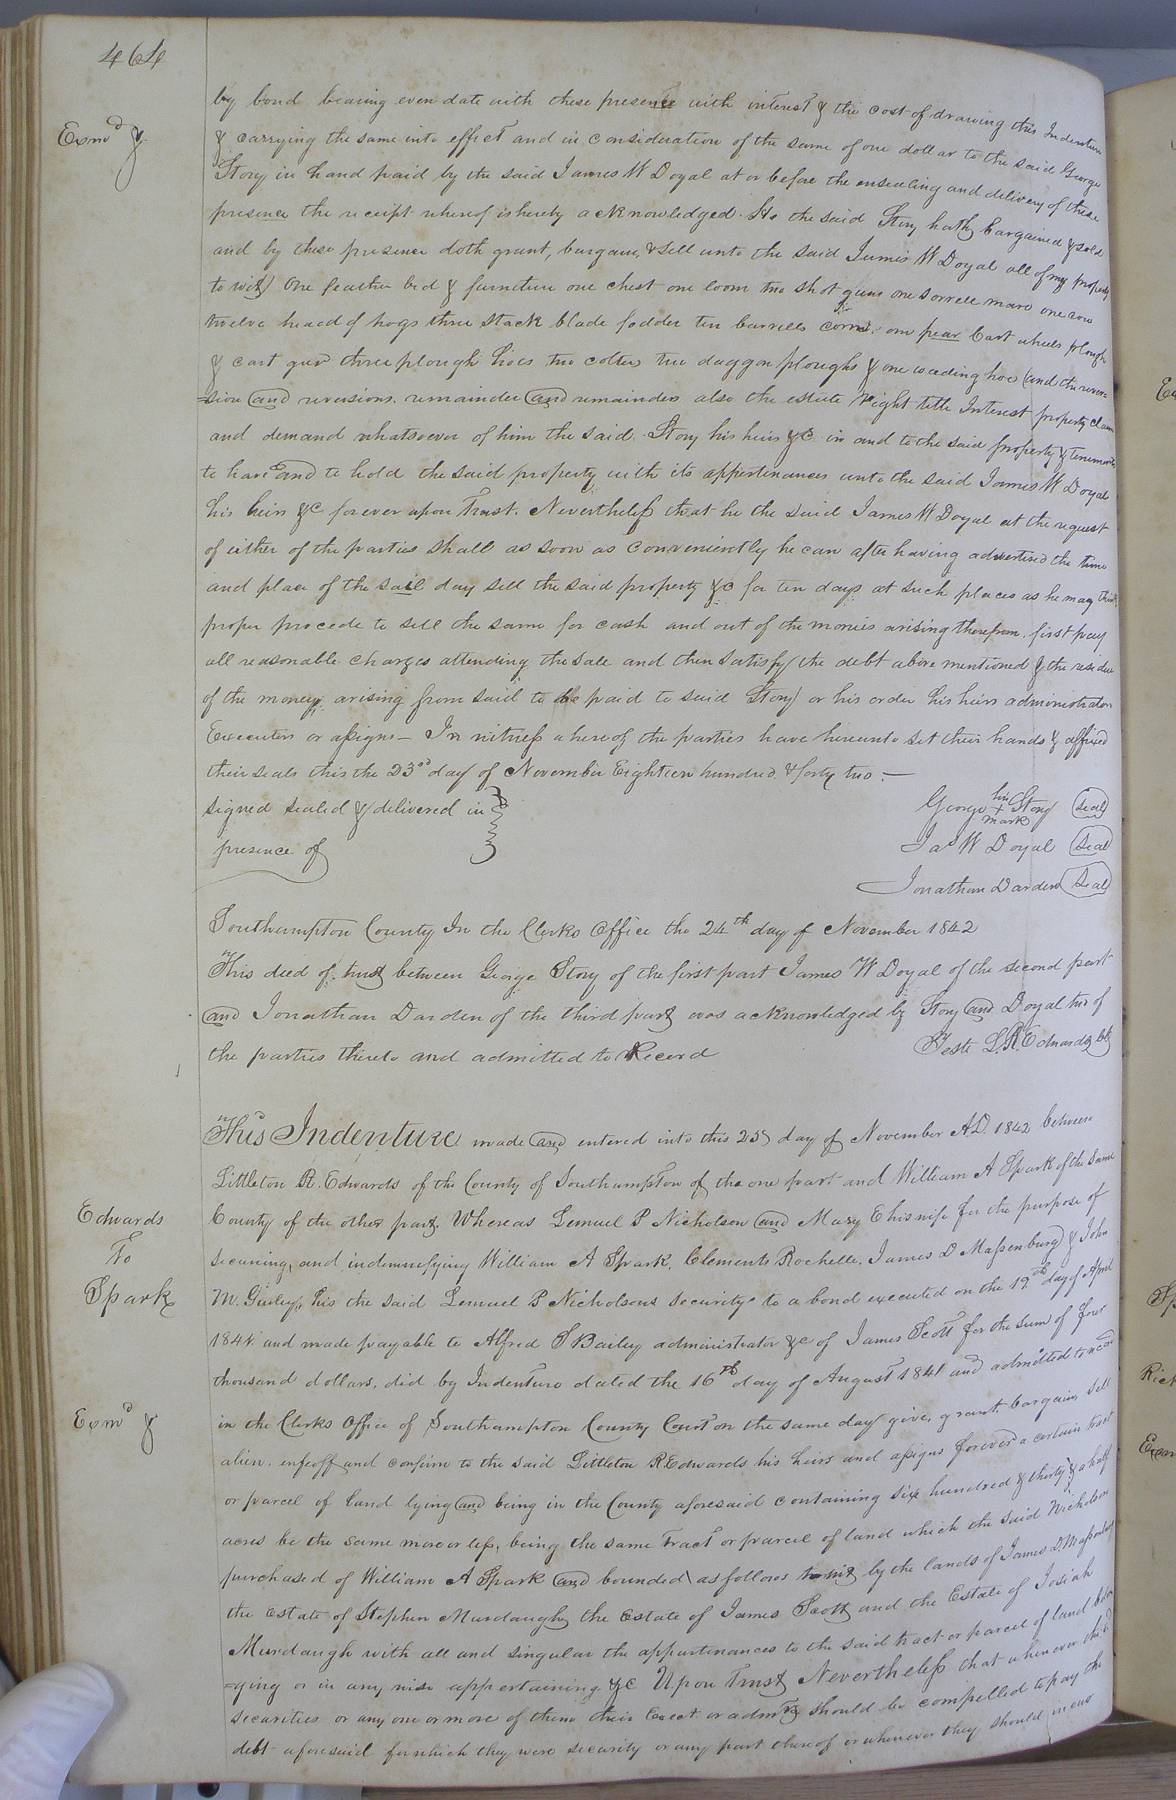 464
by bond bearing even date with these presence with interest & the cost of drawing this Indenture
Exmd &
& carrying the same into effect and in consideration of the same of one dollar to the said George
Story in hand paid by the said James W Doyal at or before the ensealing and delivery of these
presence the receipt whereof is hereby acknowledged. He the said Story hath bargained & sold
and by these presence doth grant, bargain, & sell unto the said James W Doyal all of my property
to wit) One feather bed & furniture one chest one loom two shot guns one sorrele mare one cow
twelve heaed of hogs three stack blade fodder ten barrells corn, one pear Cart wheels plough
& cart gear three plough hoes two colters two daggon ploughs & one weeding hoe (and the rever=
=sion and reversions, remainder and remainders also the estate Right title Interest property claim
and demand whatsoever of him the said Story his heirs &C in and to the said property & tenements
to have and to hold the said property with its appertinances unto the said James W Doyal
his heirs &C forever upon Trust. Nevertheless that he the said James W Doyal at the request
of either of the parties shall as soon as conveniently he can after having advertised the time
and place of the sail day sell the said property &C for ten days at such places as he may think
proper procede to sell the same for cash and out of the monies arising therefrom first pay
all reasonable charges attending the sale and then satisfy the debt above mentioned & the residue
of the money arising from said to be paid to said Story or his order his heirs administrators
Executors or assigns — In witness whereof the parties have hereunto set their hands & affixed
their seals this the 23rd day of November Eighteen hundred & forty two. —
signed sealed & delivered in
presence of
George his + mark Story (Seal)
Jas W Doyal (Seal)
Jonathan Darden (Seal)
Southampton County In the Clerks Office the 24th day of November 1842
This deed of trust between George Story of the first part James W Doyal of the second part
and Jonathan Darden of the third part was acknowledged by Story and Doyal two of
the parties thereto and admitted to Record
Teste L. R. Edwards clk
This Indenture made and entered into this 25 day of November AD. 1842 between
Littleton R. Edwards of the County of Southampton of the one part and William A Spark of the same
Edwards
To
Spark
County of the other part. Whereas Lemuel P Nicholson and Mary E his wife for the purpose of
securing, and indemnifying William A Spark, Clements Rochelle, James D Massenburg & John
M. Gurley, his the said Lemuel P Nicholsons security to a bond executed on the 19th day of April
1841 and made payable to Alfred S Bailey administrator &c of James Scott for the sum of four
thousand dollars, did by Indenture dated the 16th day of August 1841 and admitted to record
Exmd &
in the Clerks Office of Southampton County Court on the same day give, grant, bargain, sell
alien, enfeoff and confirm to the said Littleton R Edwards his heirs and assigns forever a certain tract
or parcel of land lying and being in the County aforesaid containing six hundred & thirty & a half
acres be the same more or less, being the same tract or parcel of land which the said Nicholson
purchased of William A Spark and bounded as follows to wit by the lands of James D. Massenburg
the Estate of Stephen Murdaugh, the Estate of James Scott and the Estate of Josiah
Murdaugh with all and singular the appurtenances to the said tract or parcel of land belon=
=ging or in any wise appertaining &C Upon Trust Nevertheless that whenever the sd
securities or any one or more of them their Exect or admrs should be compelled to pay the
debt aforesaid for which they were security or any part thereof or whenever they should in